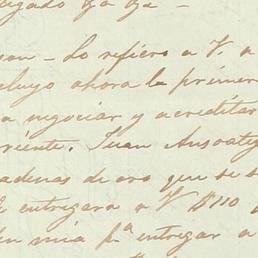 Lo refiero a V. a
ahora la primera
a negociar y acreditar
riente. Juan Ansoateg
cadenas de oro que se s
entregara a V $110
mia pª entregar a